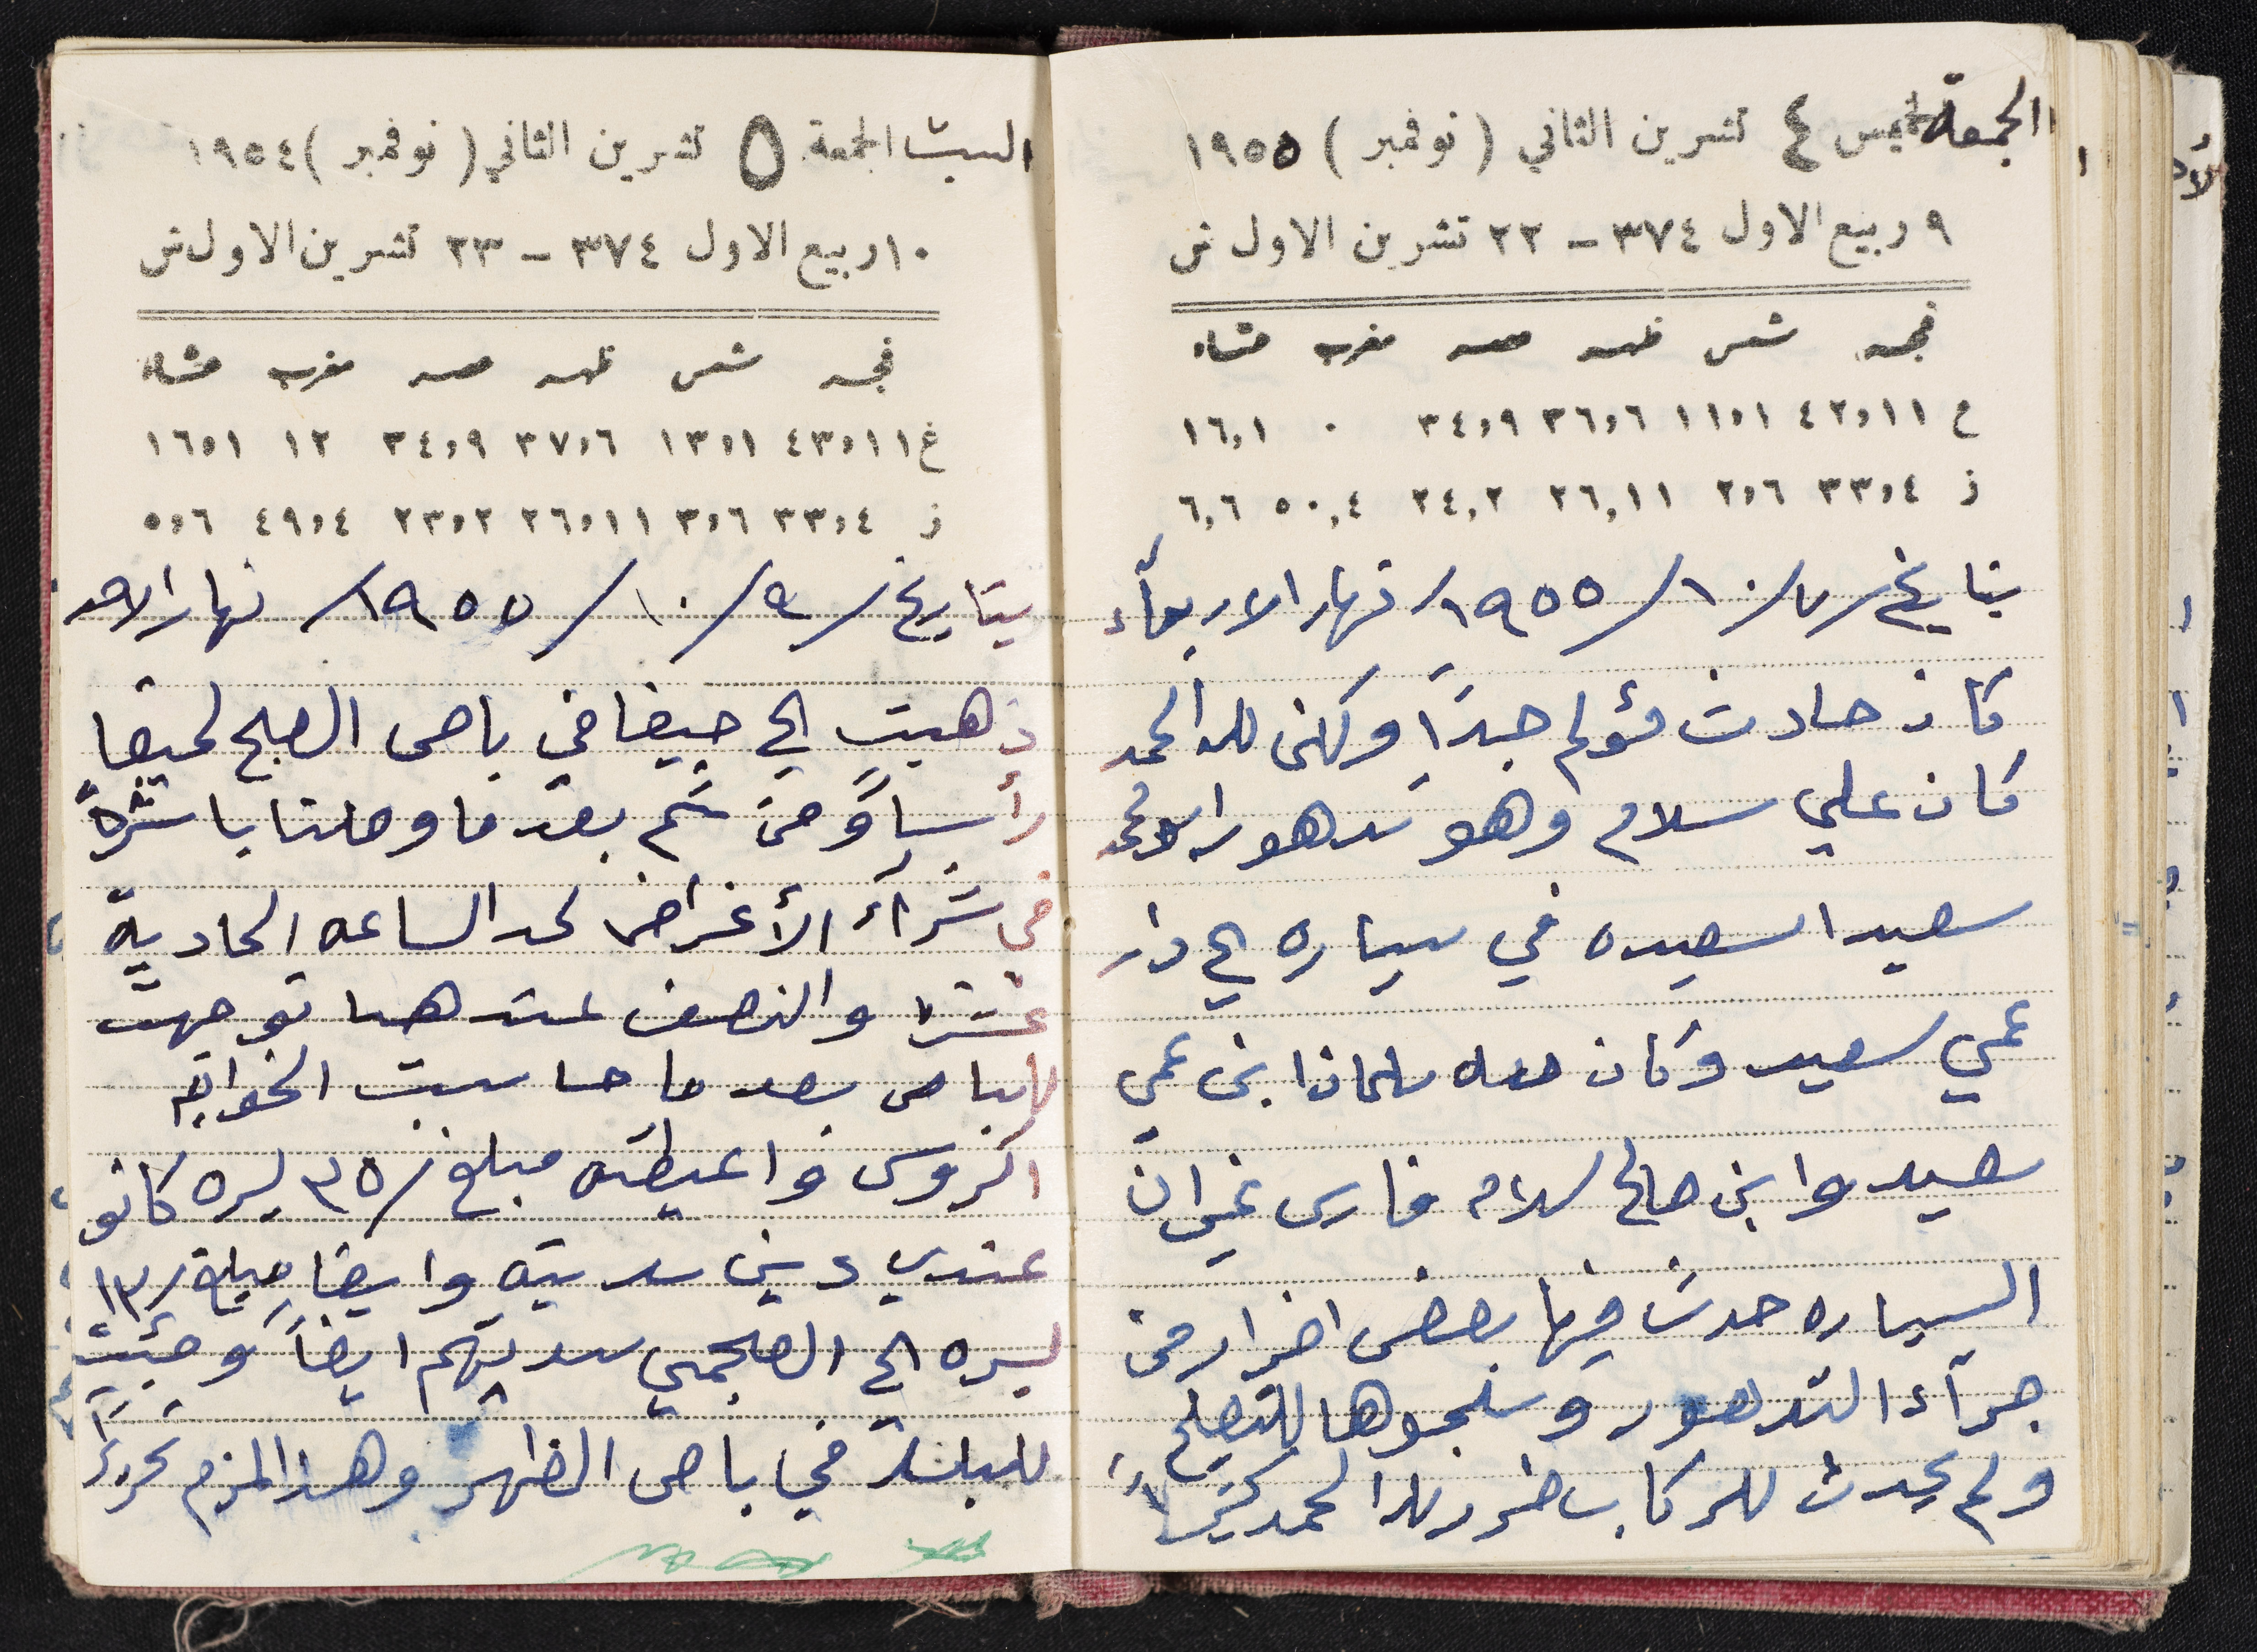 الجمعة الخميس ٤ تشرين الثاني ( نوفمبر ) ١٩٥٥
٩ ربيع الاول ٣٧٤ - ٢٢ تشرين الاول ش
فجر شمس ظهر عصر مغرب عشاء
ع ٤٢،١١ ١١،١ ٣٦،٦ ٣٤،٩ ٠ ١٦،١
ز ٣٣،٤ ٢،٦ ٢٦،١١ ٢٤،٢ ٥٠،٤ ٦،٦
بتايخ /٧/ ١٠/ ١٩٥٥/ نهار الاربعآء
كان حادث مؤلم جداً ولكن لله الحمد
كان على سلام وهو تدهور
سعيد السعيده في سياره الى دار
عمي سعيد وكان معه سلمان ابن عمي
سعيد وابن صالح سلام فارس غيران
السياره حدث فيها بعض اضرار من
جرآء التدهور وسلجوها للتصليح
ولم يحدث للركاب ضرر لله الحمد كثيراً
السبت الجمعة ٥ تشرين الثاني ( نوفمبر ) ١٩٥٤
١٠ ربيع الاول ٣٧٤ - ٢٣ تشرين الاول ش
فجر شمس ظهر عصر مغرب عشاء
غ ٤٣،١١ ١٣،١ ٣٧،٦ ٣٤،٩ ١٢ ١٦،١
ز ٣٣،٤ ٣،٦ ٢٦،١١ ٢٣،٢ ٤٩،٤ ٥،٦
بتاريخ /٩/ ١٠/ ١٩٥٥/ نهار الاحد
ذهبت الى حيفا في باص الصبح لحيفا
رأساً ومن ثم بعد ما وصلنا باشرة
في شرآء الأغراض لحد الساعه الحادية
عشر والنصف عندها توجهت
للباص بعد ما حاسبت الخواجه
اكروس واعطيته مبلغ /٣٥ ليره كانو
عندي دين سديته وايضا مبلغ /١٣
ليره الى العجمي سديتهم ايضاً وجئت
للبلد في باص الظهر وهذا لزم تحريراً